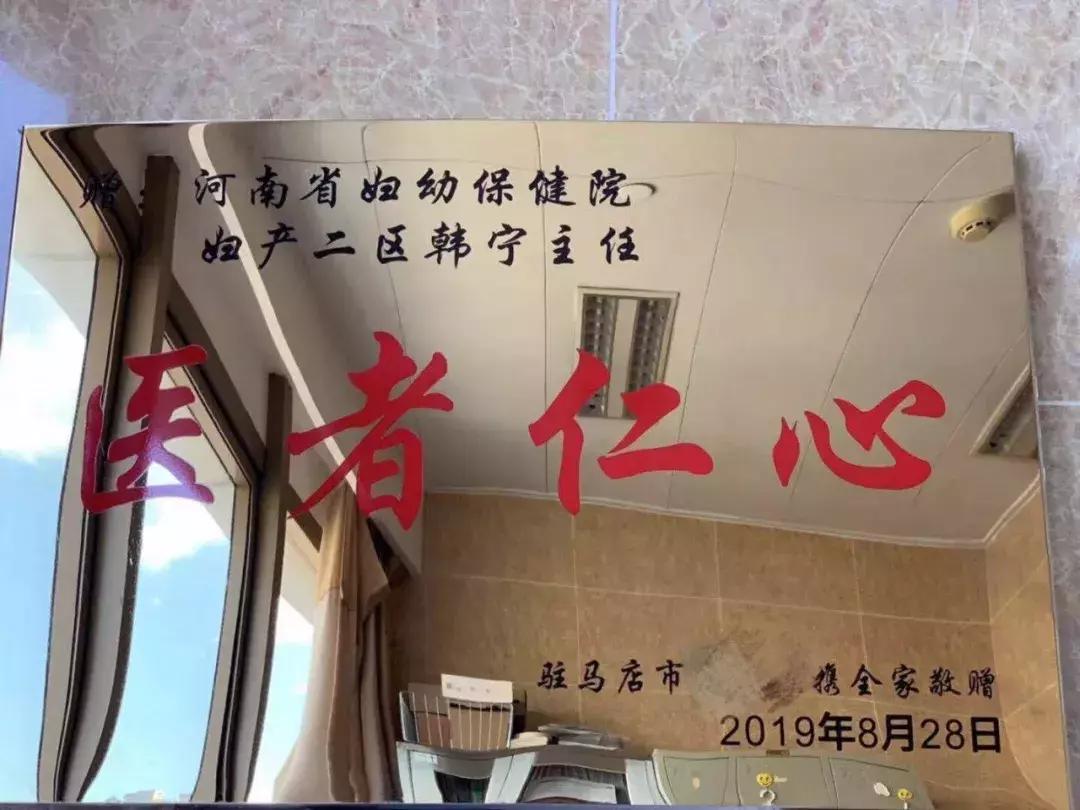 赠：河南省妇幼保健院
妇产二区韩宁主任
医者仁心
驻马店市 携全家敬赠
2019年8月28日